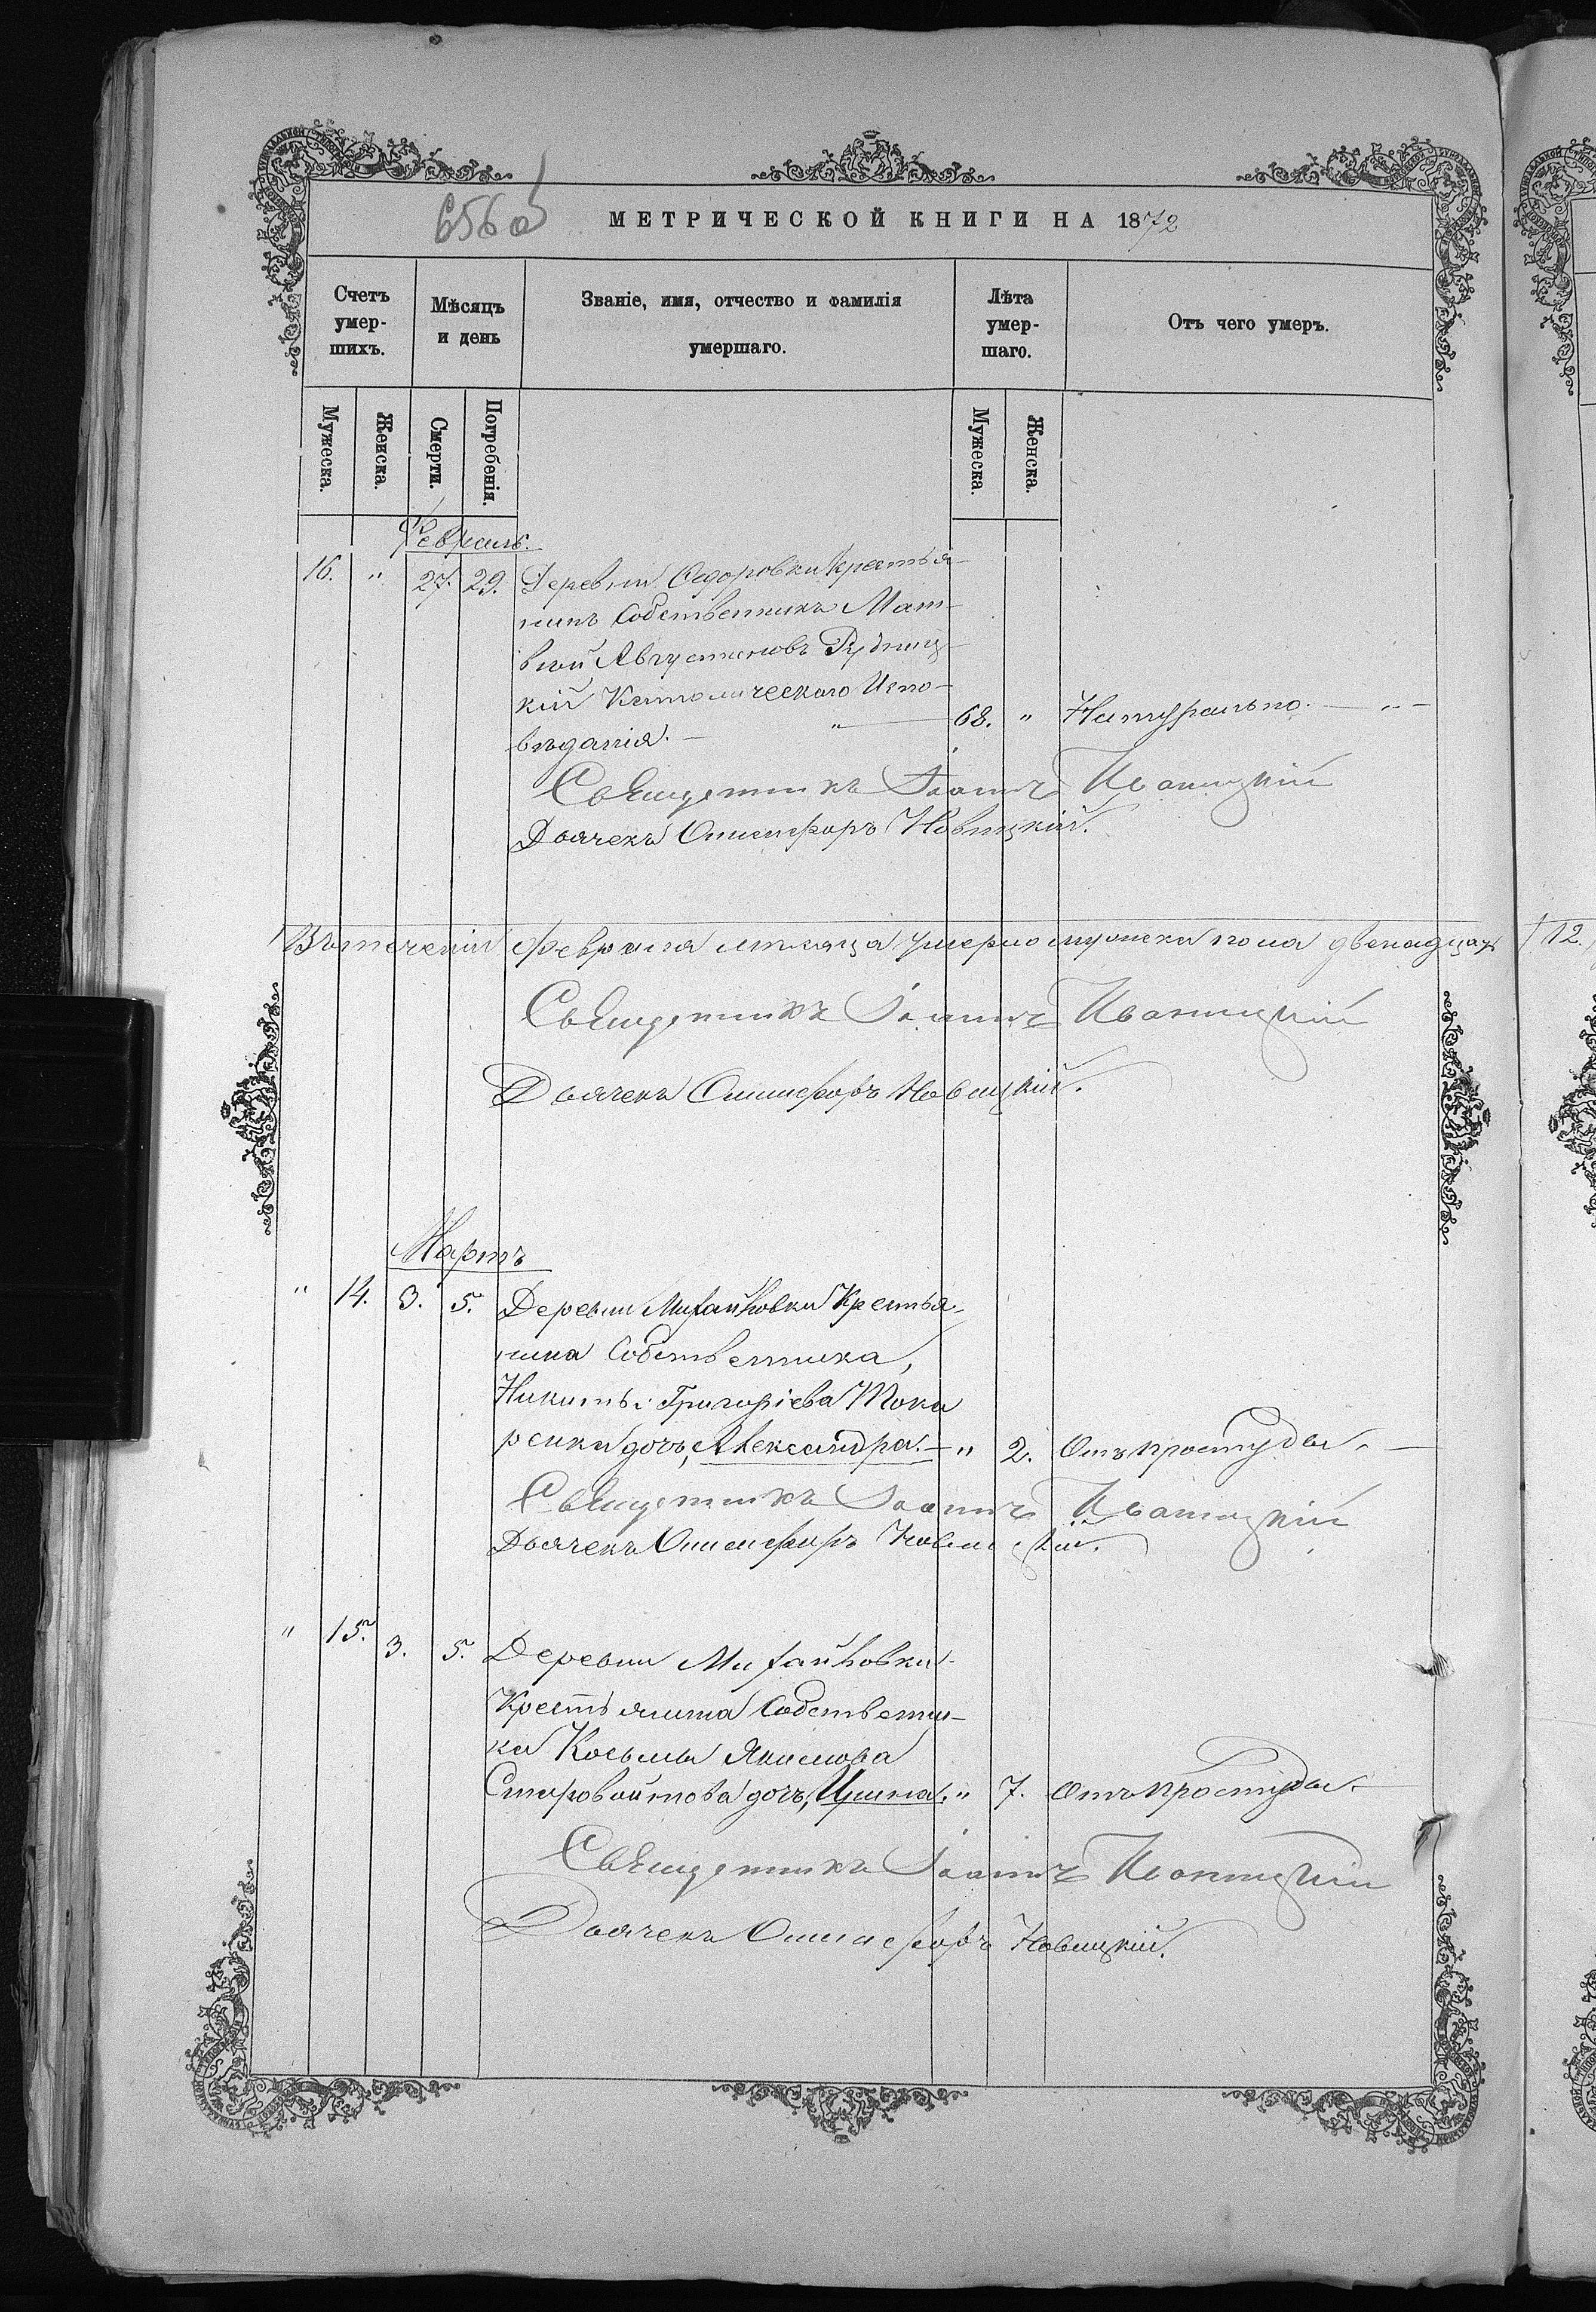 656 об
МЕТРИЧЕСКОЙ КНИГИ НА 1872
Счетъ умер-шихъ.
Мѣсяцъ и день
Званіе, имя, отчество и фамилія умершаго.
Лѣта умер-шаго.
Отъ чего умеръ.
Мужеска. Женска. Смерти. Погребенія. Мужеска. Женска.
Февраль.
16. " 27. 29. Деревни Федоровки Крестья-
нинъ Собственникъ Мат-
вѣй Августиновъ Рудниц-
кій Католическаго Испо-
вѣданія. — " — 68. " Натурально.
Священникъ Іоаннъ Иваницкій
Дьячекъ Онисифоръ Новицкій.
Въ теченіи февраля мѣсяца умерло мужска пола двенадцать
12.
Священникъ Іоаннъ Иваницкій
Дьячекъ Онисифоръ Новицкій.
Мартъ
" 14. 3. 5. Деревни Михайловки Крестья-
нина Собственника,
Никиты Григоріева Тока
ренка дочь, Александра. — " 2. Отъ простуды. —
Священникъ Іоаннъ Иваницкій
Дьячекъ Онисифоръ Новицкій.
" 15. 3. 5. Деревни Михайловки
Крестьянина Собственни-
ка Косьмы Якимова
Старовойтова дочь, Ирина. " 7. Отъ простуды. —
Священникъ Іоаннъ Иваницкій
Дьячекъ Онисифоръ Новицкій.